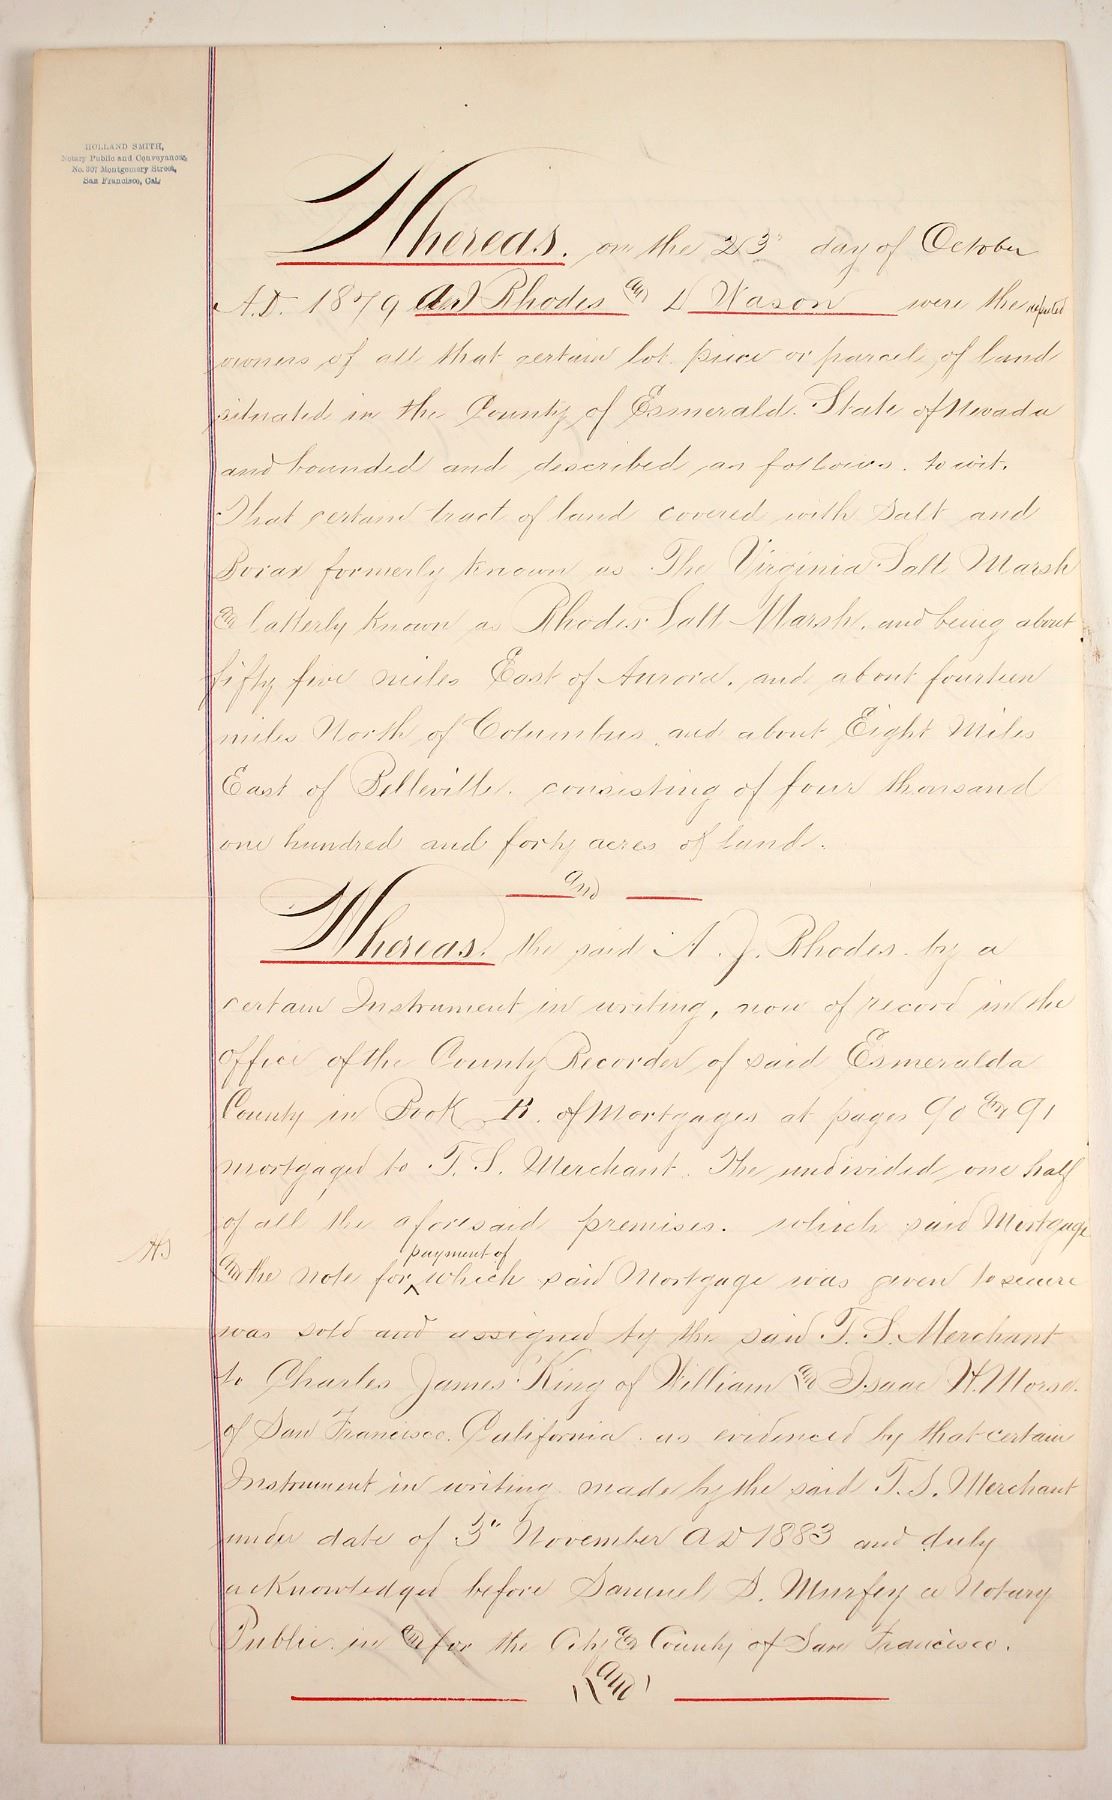 HOLLAND SMITH,
Notary Public and Conveyancer,
No. 307 Montgomery Street,
San Francisco, Cal.
Whereas. on the 23" day of October
A.D. 1879 Rhodes & D Wason were the reputed
owners of all that certain lot piece or parcel of land
situated in the County of Esmerald. State of Nevada
and bounded and described as follows. to wit.
That certain tract of land covered with Salt and
Borax formerly known as The Virginia Salt Marsh
& latterly known as Rhodes Salt Marsh, and being about
fifty five miles East of Aurora. and about fourteen
miles North of Columbus and about Eight Miles
East of Belleville. consisting of four thousand
one hundred and forty acres of land.
And
Whereas. the said A. J. Rhodes by a
certain Instrument in writing, now of record in the
office of the County Recorder of said Esmeralda
County in Book B. of Mortgages at pages 90 & 91
mortgaged to T. S. Merchant. The undivided one half
of all the aforesaid premises. which said Mortgage
payment of
HS
& the note for which said Mortgage was given to secure
was sold and assigned by the said T. S. Merchant
to Charles James King of William & Isaac H. Morse.
of San Francisco. California as evidenced by that certain
Instrument in writing made by the said T. S. Merchant
under date of 3" November A D 1883 and duly
acknowledged before Samuel S. Murfey a Notary
Public in & for the City & County of San Francisco.
And